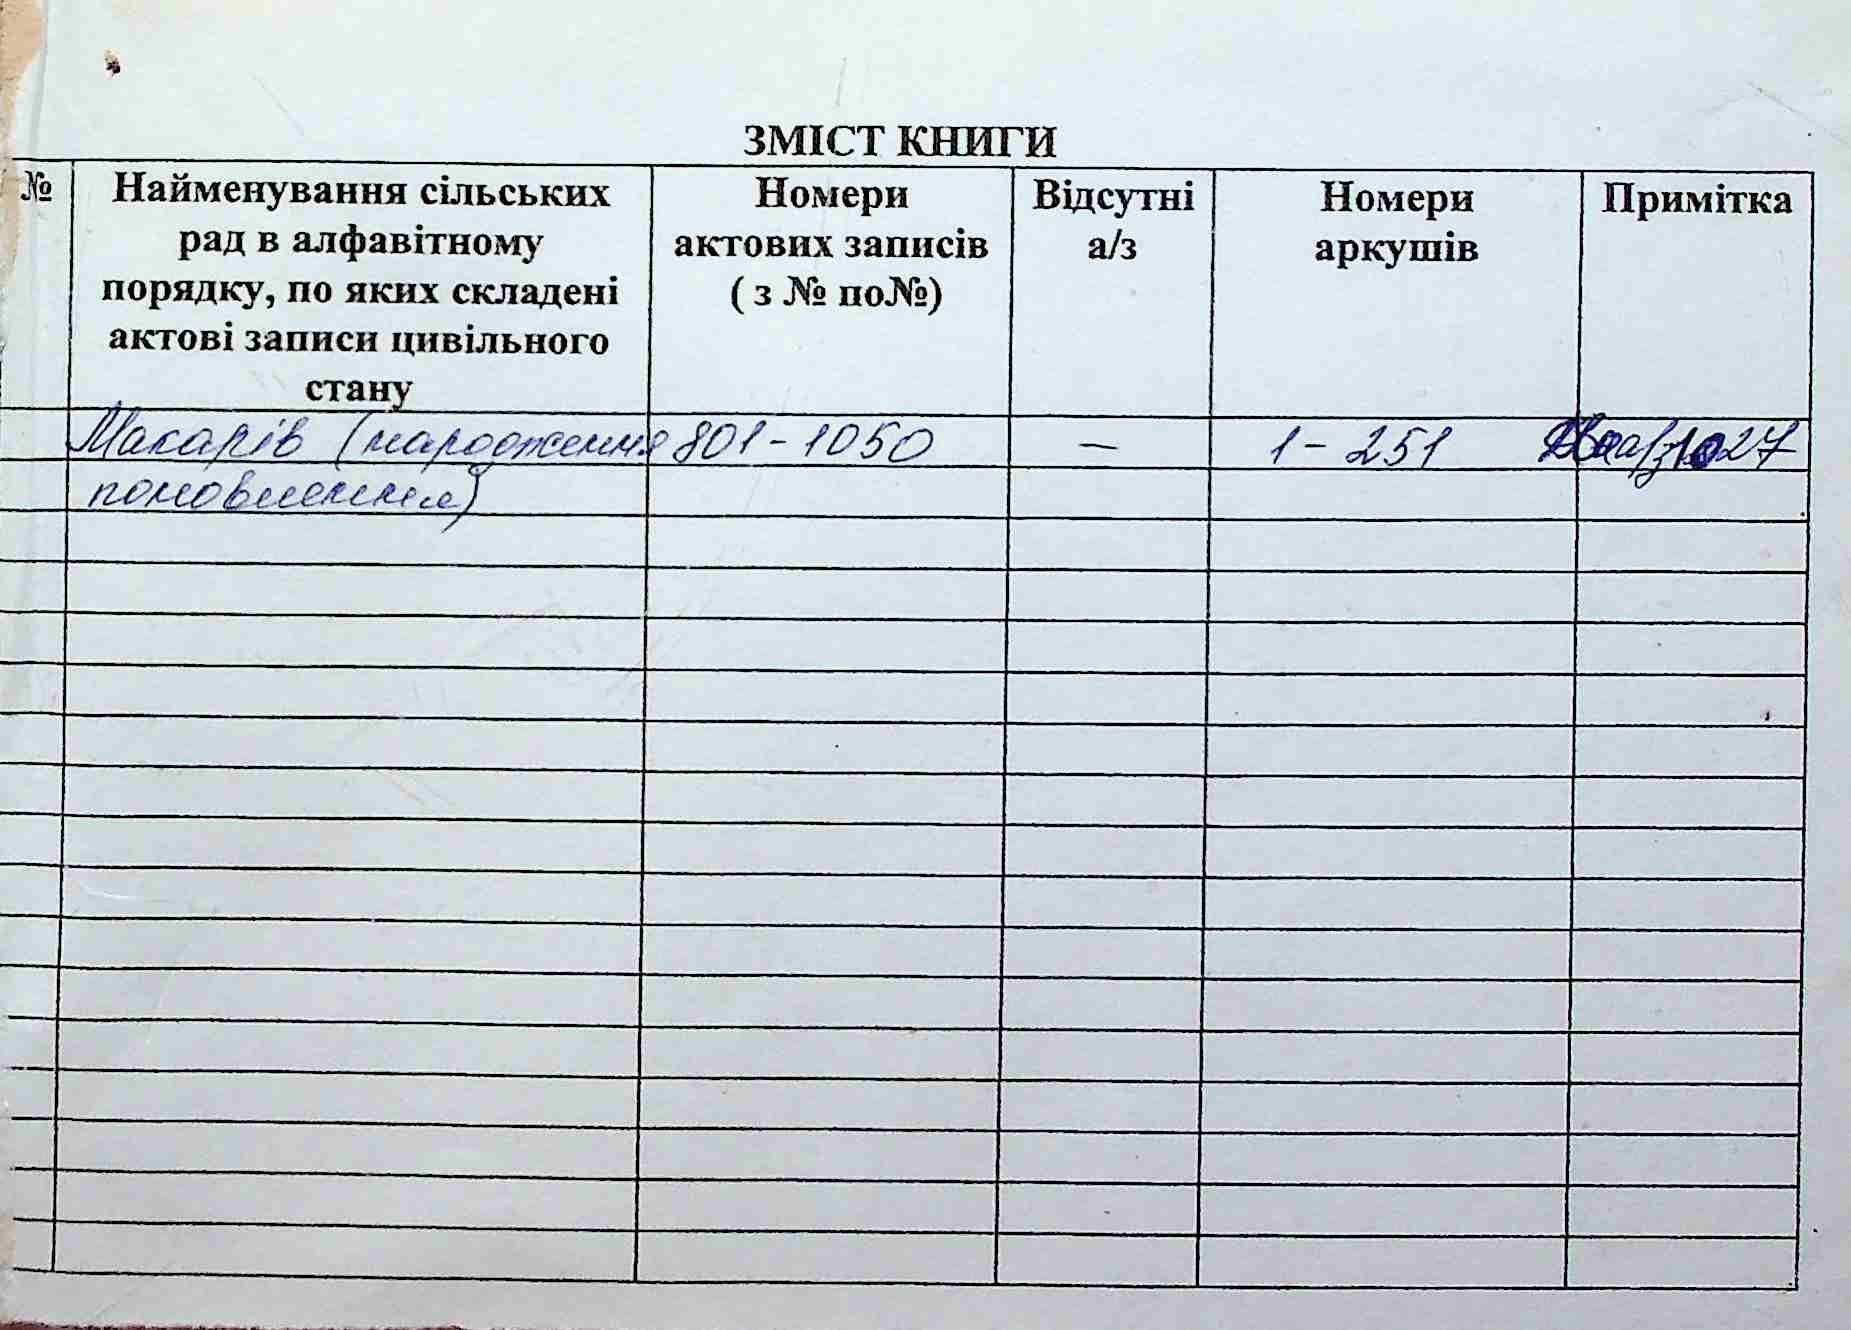 ЗМІСТ КНИГИ
№ Найменування сільських рад в алфавітному порядку, по яких складені актові записи цивільного стану
Номери актових записів ( з № по№)
Відсутні а/з
Номери аркушів
Примітка
Макарів (народження 801-1050 — 1-251 а/з 1027
поновлення)